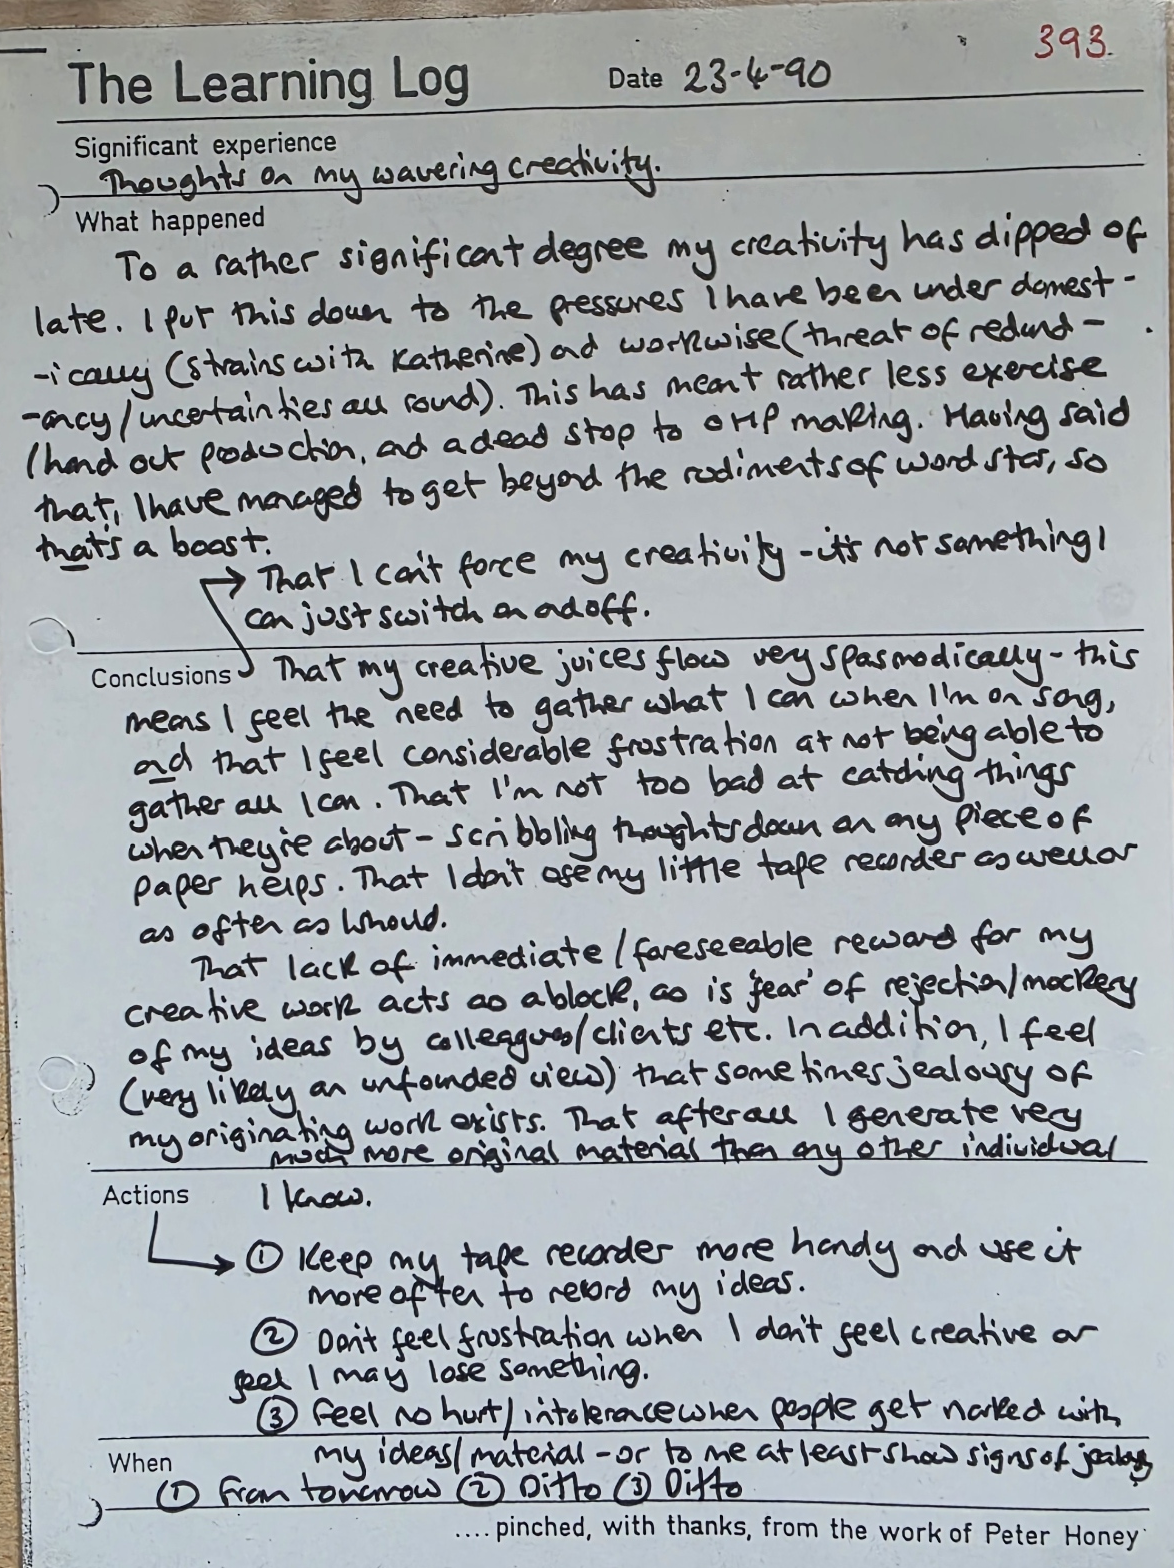 393.
The Learning Log Date 23-4-90
Significant experience
Thoughts on my wavering creativity.
What happened
To a rather significant degree my creativity has dipped of
late. I put this down to the pressures I have been under domest-
-ically (strains with Katherine) and workwise (threat of redund-
-ancy/uncertainties all round). This has meant rather less exercise
/hand out production, and a dead stop to OHP making. Having said
that, I have managed to get beyond the rudiments of wordstar, so
that's a boost.
That I can't force my creativity - it's not something I
can just switch on and off.
Conclusions That my creative juices flow very spasmodically - this
means I feel the need to gather what I can when I'm on song,
and that I feel considerable frustration at not being able to
gather all I can. That I'm not too bad at catching things
when they're about - scribbling thoughts down on any piece of
paper helps. That I don't use my little tape recorder as well or
as often as I should.
That lack of immediate/foreseeable reward for my
creative work acts as a block, as is 'fear' of rejection/mockery
of my ideas by colleagues/clients etc. In addition, I feel
(very likely an unfounded view) that sometimes jealousy of
my originating work exists. That after all I generate very
much more original material than any other individual
Actions I know.
① Keep my tape recorder more handy and use it
more often to record my ideas.
② Don't feel frustration when I don't feel creative or
feel I may lose something.
③ Feel no hurt/intolerence when people get narked with
my ideas/material - or to me at least show signs of jealousy
When
① From tomorrow ② Ditto ③ Ditto
.... pinched, with thanks, from the work of Peter Honey